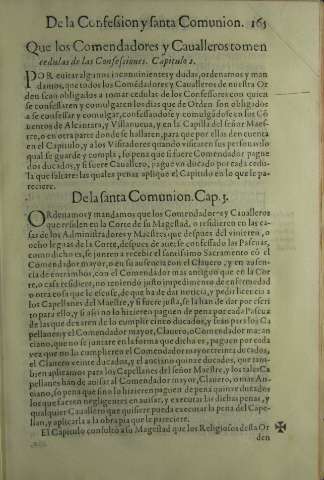 De la Confession y santa Comunion. 165
Que los Comendadores y Caualleros tomen
cedulas de las Confessiones. Capitulo 2.
POR euitar algunos inconuinientes y dudas, ordenamos y man
damos, que todos los Comẽdadores y Caualleros de nuestra Or
den sean obligados a tomar cedulas de los Confessores con quien
se confessaren y comulgaren los dias que de Orden son obligados
a se confessar y comulgar, confessandose y comulgãdose en los Cõ
uentos de Alcantara, y Villanueua, y en la Capilla del señor Maes-
tre, o en otra parte donde se hallaren, para que por ellas den cuenta
en el Capitulo, y a los Visitadores quando visitaren sus personas lo
qual se guarde y cumpla, so pena que si fuere Comendador pague
dos ducados, y si fuere Cauallero, pague vn ducado por cada cedu-
la que faltare: las quales penas aplique el Capitulo en lo que le pa-
reciere.
De la santa Comunion. Cap. 3.
ORdenamos y mandamos que los Comendadores y Caualleros
que residen en la Corte de su Magestad, o residieren en las ca-
sas de los Administradores y Maestres que despues del vinieren, o
ocho leguas de la Corte, despues de auerse confessado las Pascuas,
como dicho es, se junten a recebir el santissimo Sacramento cõ el
Comendador mayor, o en su ausencia con el Clauero, y en ausen-
cia de entrambos, con el Comendador mas antiguo que en la Cor
te, o casa residiere, no teniendo justo impedimento de enfermedad
o otra cosa que le escuse, de que ha de dar noticia, y pedir licencia a
los Capellanes del Maestre, y si fuere justa, se la han de dar por escri
to para ello, y si assi no lo hizieren paguen de pena por cada Pascua
de las que dexaren de lo cumplir cinco ducados, y si auisados los Ca
pellanes y el Comendador mayor, Clauero, o Comendador mas an
ciano, que no se juntare en la forma que dicha es, paguen por cada
vez que no lo cumplieren el Comendador mayor treinta ducados,
el Clauero veinte ducados, y el anciano quinze ducados, que tam-
bien aplicamos para los Capellanes del señor Maestre, y los tales Ca
pellanes han de auisar al Comendador mayor, Clauero, o mas An-
ciano, so pena que sino lo hizieren paguen de pena quinze ducados
los que fueren negligentes en auisar, y executar las dichas penas, y
qualquier Cauallero que quisiere pueda executar la pena del Cape-
llan, y aplicarla a la obra pia que le pareciere.
El Capitulo consultò a su Magestad que los Religiosos desta Or
den